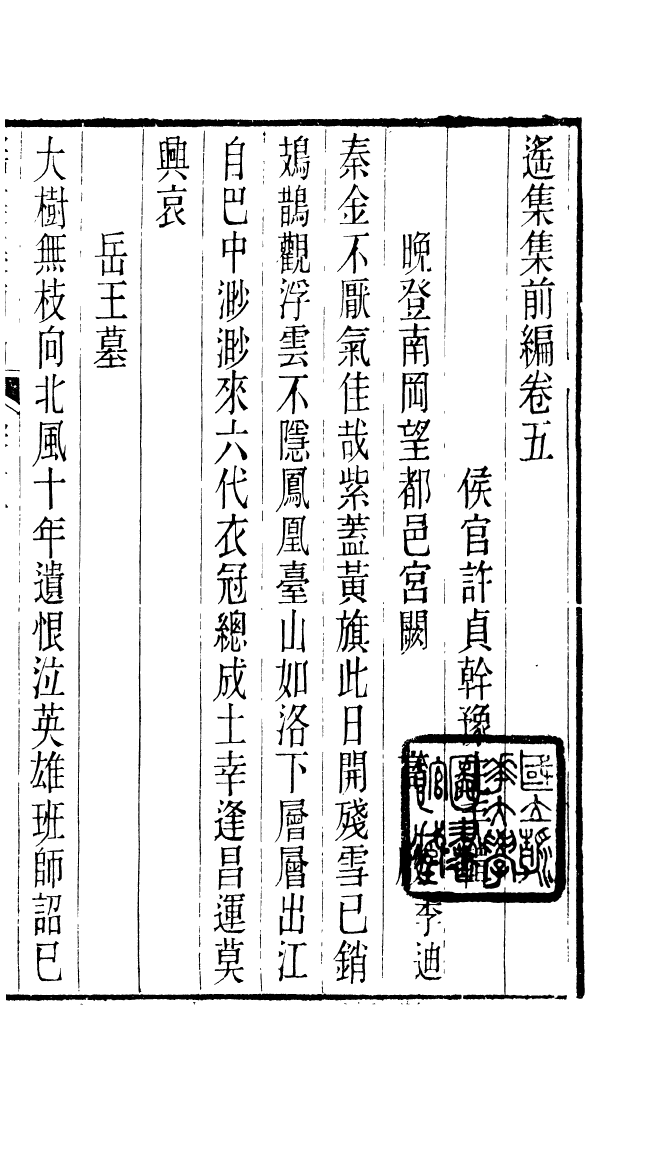 遙集集前編卷五
侯官許貞幹豫
晚登南岡望都邑宮闕 李迪
秦金不厭氣佳哉紫蓋黃旗此日開殘雪已銷
鳷鵲觀浮雲不隱鳳凰臺山如洛下層層出江
自巴中渺渺來六代衣冠總成土幸逢昌運莫
興哀
岳王墓
大樹無枝向北風十年遺恨泣英雄班師詔已